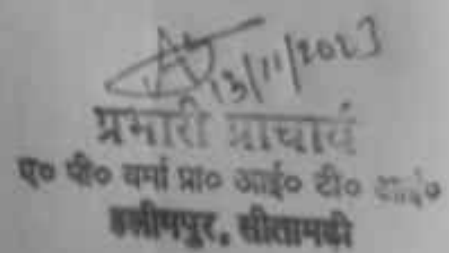 13/11/2023
प्रभारी प्राचार्य
ए० पी० वर्मा प्रा० आई० टी० आई०
हलीमपुर, सीतामढ़ी